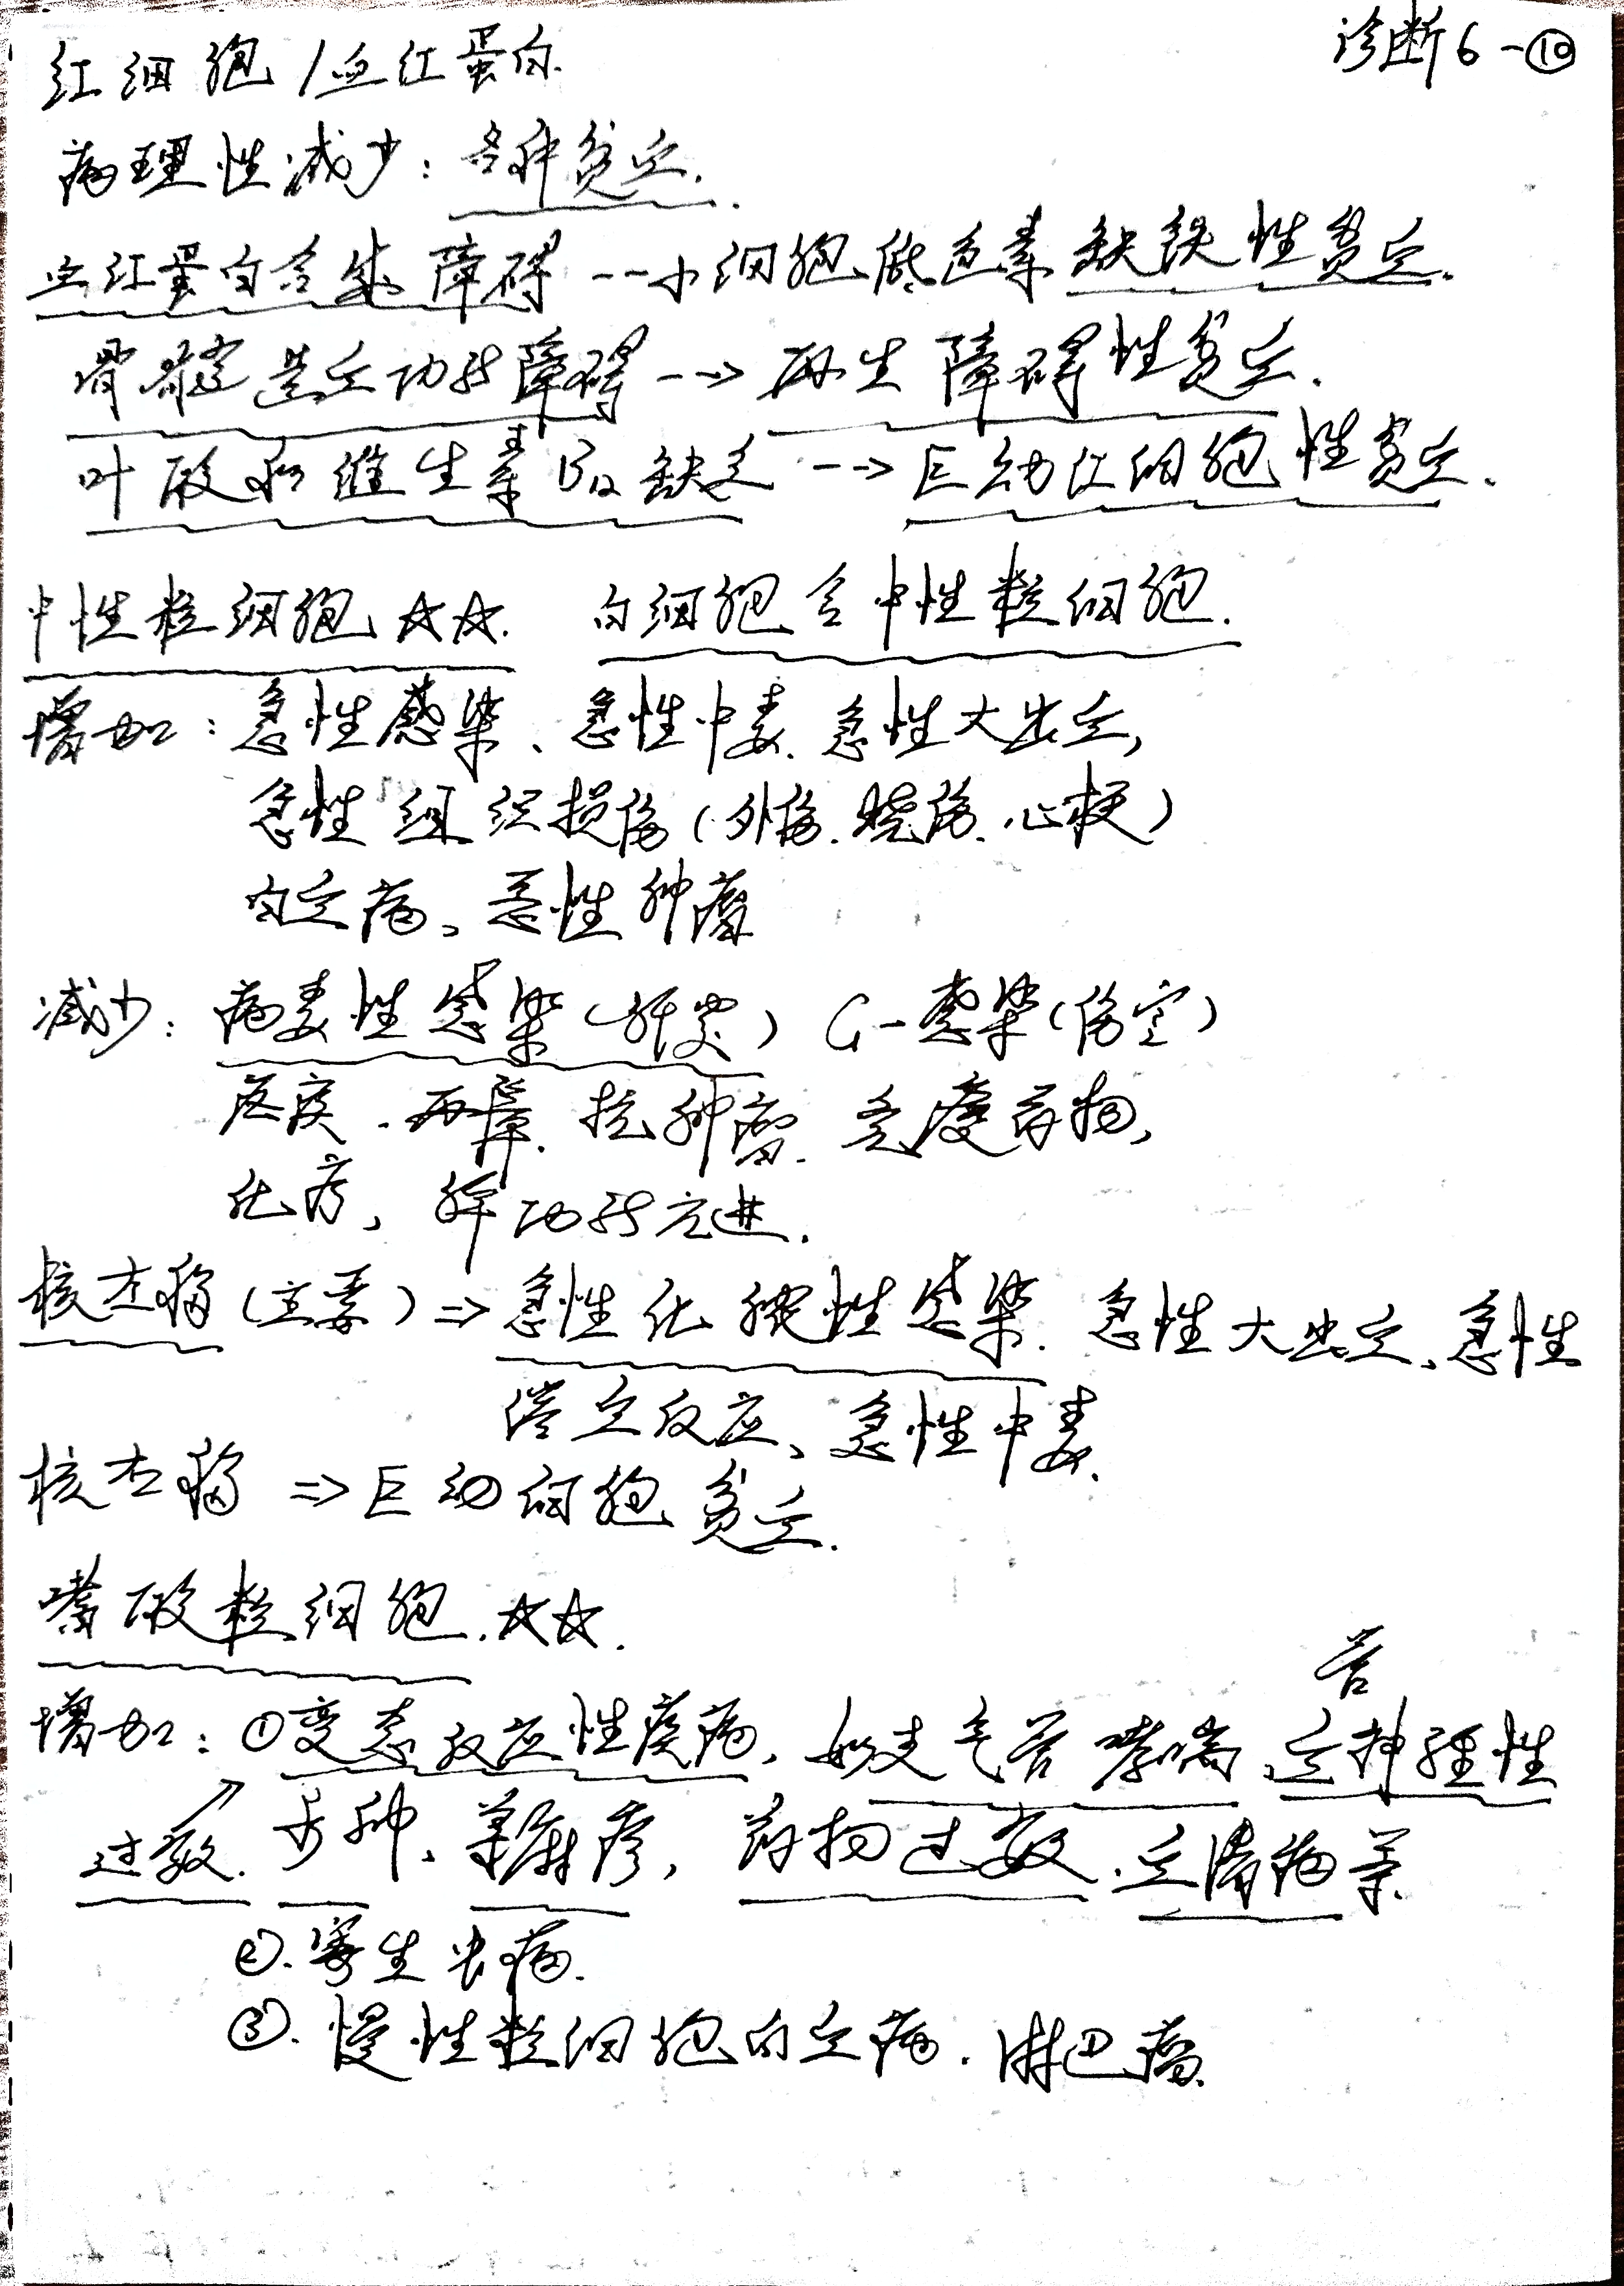 诊断6-⑩
红细胞/血红蛋白.
病理性减少:各种贫血.
血红蛋白合成障碍--小细胞低色素缺铁性贫血.
骨髓造血功能障碍-->再生障碍性贫血.
叶酸和维生素B12缺乏-->巨幼红细胞性贫血.
中性粒细胞☆☆. 白细胞含中性粒细胞.
增加:急性感染、急性中毒、急性大出血,
急性组织损伤(外伤.烧伤.心梗)
白血病、恶性肿瘤
减少:病毒性感染(肝炎) G-感染(伤寒)
疟疾.再障.抗肿瘤.免疫药物,
化疗,脾功能亢进.
核左移(主要)=>急性化脓性感染.急性大出血、急性
溶血反应、急性中毒.
核右移=>巨幼细胞贫血.
嗜酸粒细胞.☆☆.
管
增加:①变态反应性疾病,如支气管哮喘、血神经性
过敏.水肿、荨麻疹,药物过敏.血清病等.
②.寄生虫病.
③.慢性粒细胞白血病.淋巴瘤.